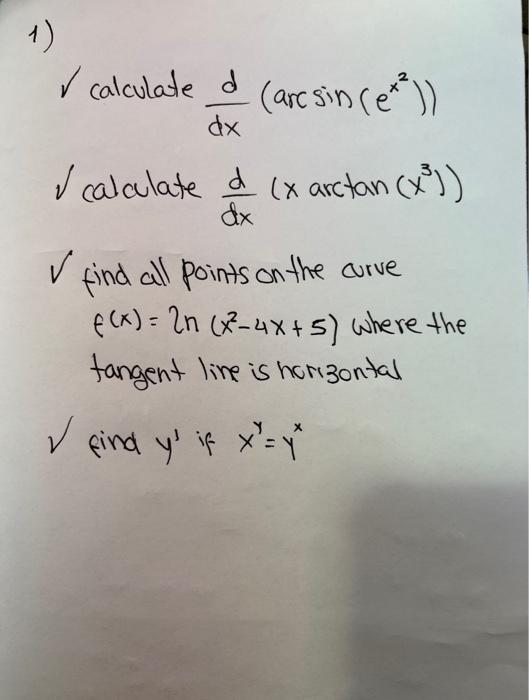 1)
✓ calculate d/dx (arcsin(e^x²))
✓ calculate d/dx (x arctan(x³))
✓ find all points on the curve
f(x) = ln (x²-4x+5) where the
tangent line is horizontal
✓ find y' if x^y = y^x